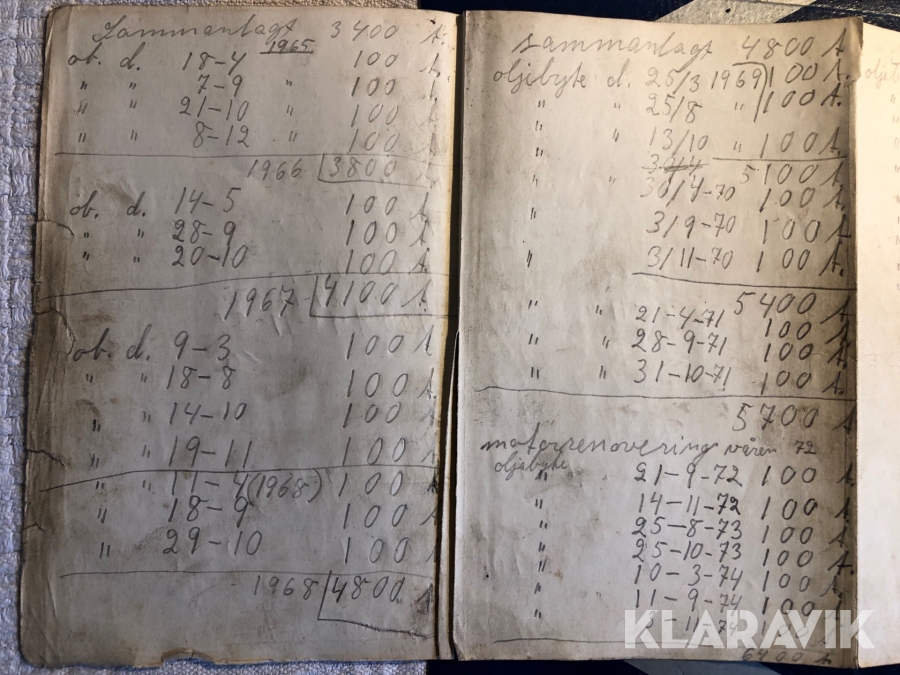 Sammanlagt 3400 t.
1965
ob. d. 18-4 100 t.
" " 7-9 " 100 t
" " 21-10 " 100 t
" " 8-12 " 100 t
1966 3800 t
ob. d. 14-5 100 t
" " 28-9 100 t
" " 20-10 100 t.
1967 4100 t.
ob. d. 9-3 100 t
" " 18-8 100 t
" " 14-10 100 t
" " 19-11 100 t
" " 11-4 (1968) 100 t
" 18-9 100 t
" 29-10 100 t
1968 4800 t
sammanlagt 4800 t
oljebyte d. 25/3 1969 100 t.
" 25/8 " 100 t.
" " 13/10 " 100 t.
5100 t.
" " 30/4-70 100 t.
" 3/9-70 100 t.
" 3/11-70 100 t.
5400 t
" " 21-4-71 100 t
" " 28-9-71 100 t.
" " 31-10-71 100 t.
5700 t
motorrenovering våren 72
oljebyte " 21-9-72 100 t
" 14-11-72 100 t
" 25-8-73 100 t
" 25-10-73 100 t.
" 10-3-74 100 t.
" 11-9-74 100 t
" 3-11-74 100 t
6400 t
KLARAVIK